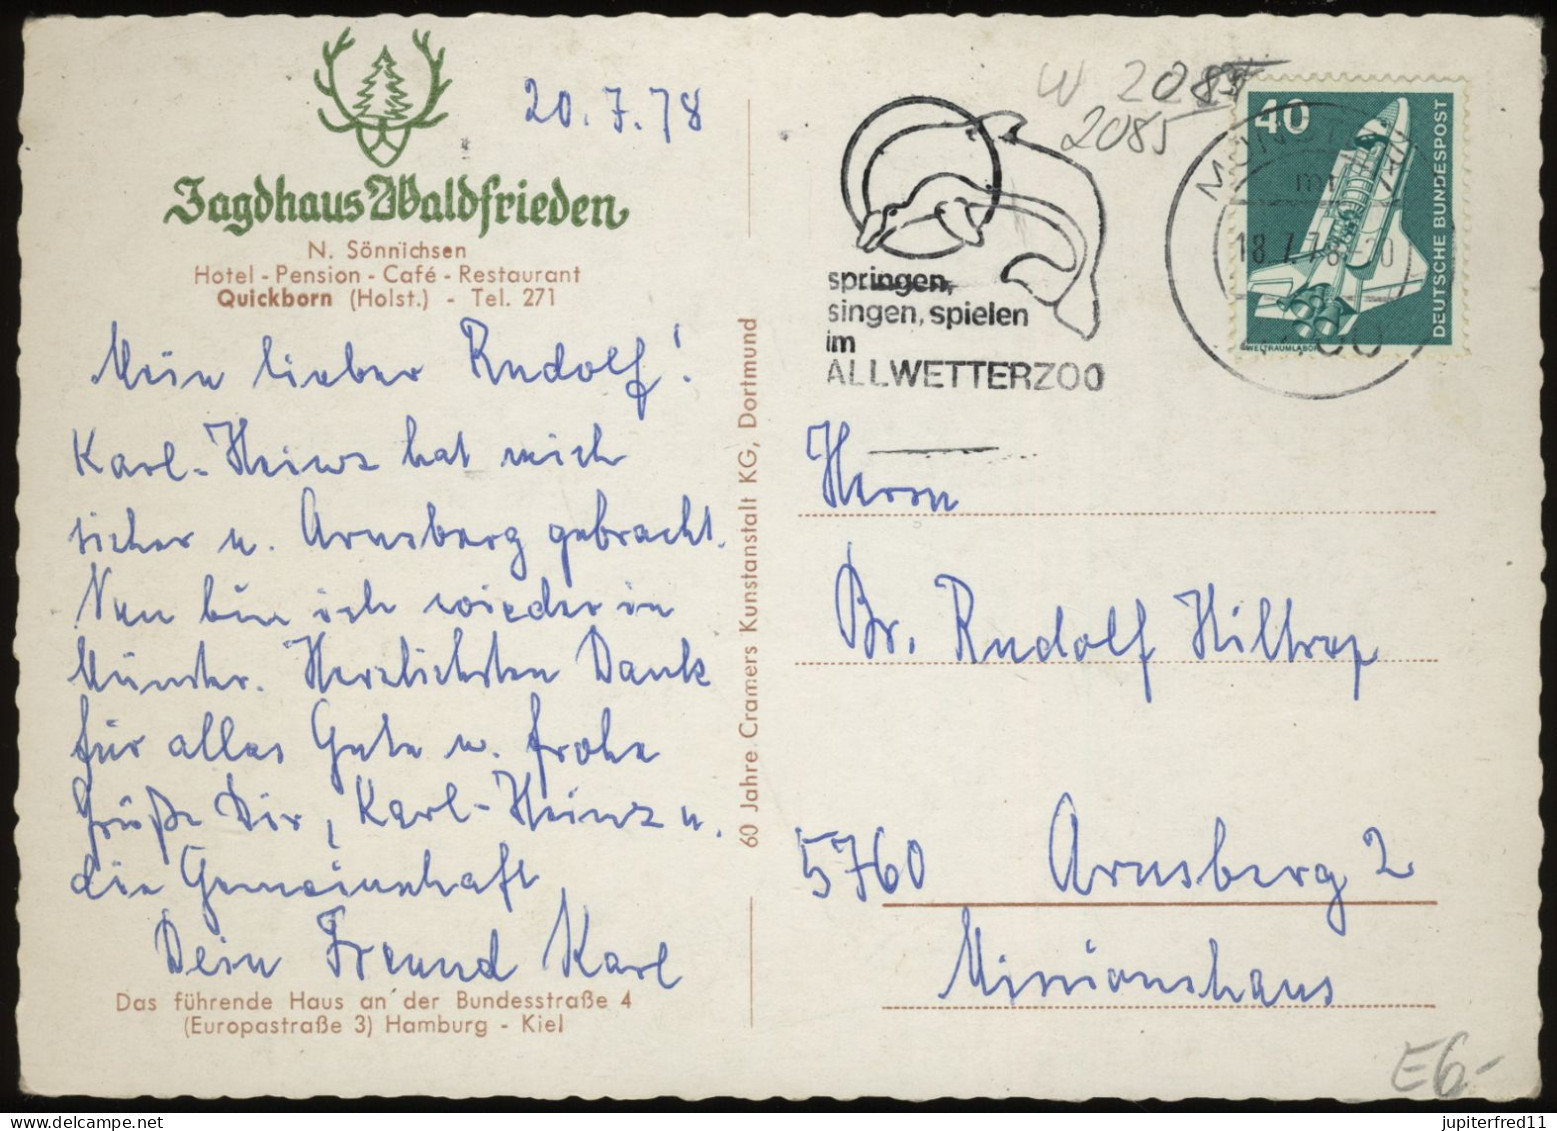 20.7.78
Jagdhaus Waldfrieden
N. Sönnichsen
Hotel - Pension - Café - Restaurant
Quickborn (Holst.) - Tel. 271
Mein lieber Rudolf!
Karl-Heinz hat mich
sicher n. Arnsberg gebracht.
Nun bin ich wieder in
Münster. Herzlichsten Dank
für alles Gute u. frohe
Grüße Dir, Karl-Heinz u.
die Gemeinschaft
Dein Freund Karl
Das führende Haus an der Bundesstraße 4
(Europastraße 3) Hamburg - Kiel
60 Jahre Cramers Kunstanstalt KG, Dortmund
W 2085
2085
springen,
singen, spielen
im
ALLWETTERZOO
18.7.78.-20
40
DEUTSCHE BUNDESPOST
WELTRAUMLABOR
Herrn
Br. Rudolf Hiltrop
5760 Arnsberg 2
Missionshaus
E6-
jupiterfred11